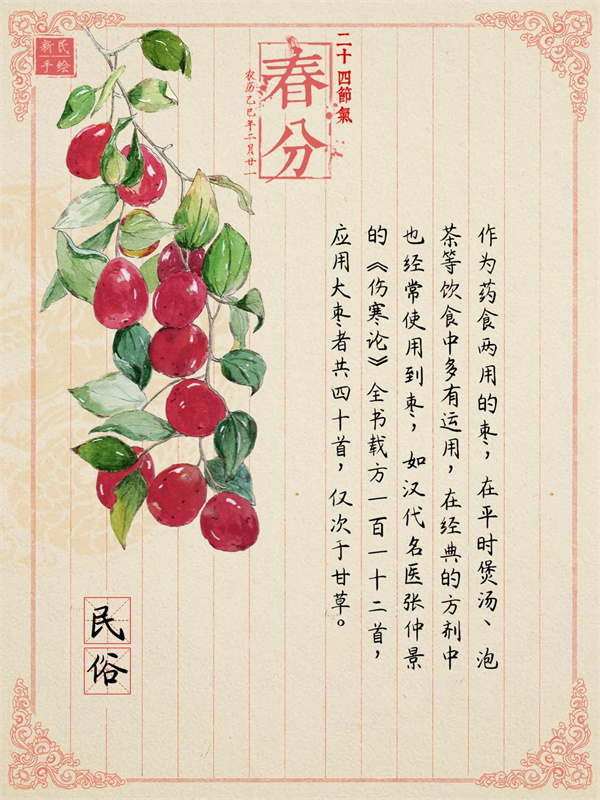 二十四節氣
春分
农历乙巳年二月廿一
新民
手绘
作为药食两用的枣，在平时煲汤、泡
茶等饮食中多有运用，在经典的方剂中
也经常使用到枣，如汉代名医张仲景
的《伤寒论》全书载方一百一十二首，
应用大枣者共四十首，仅次于甘草。
民俗